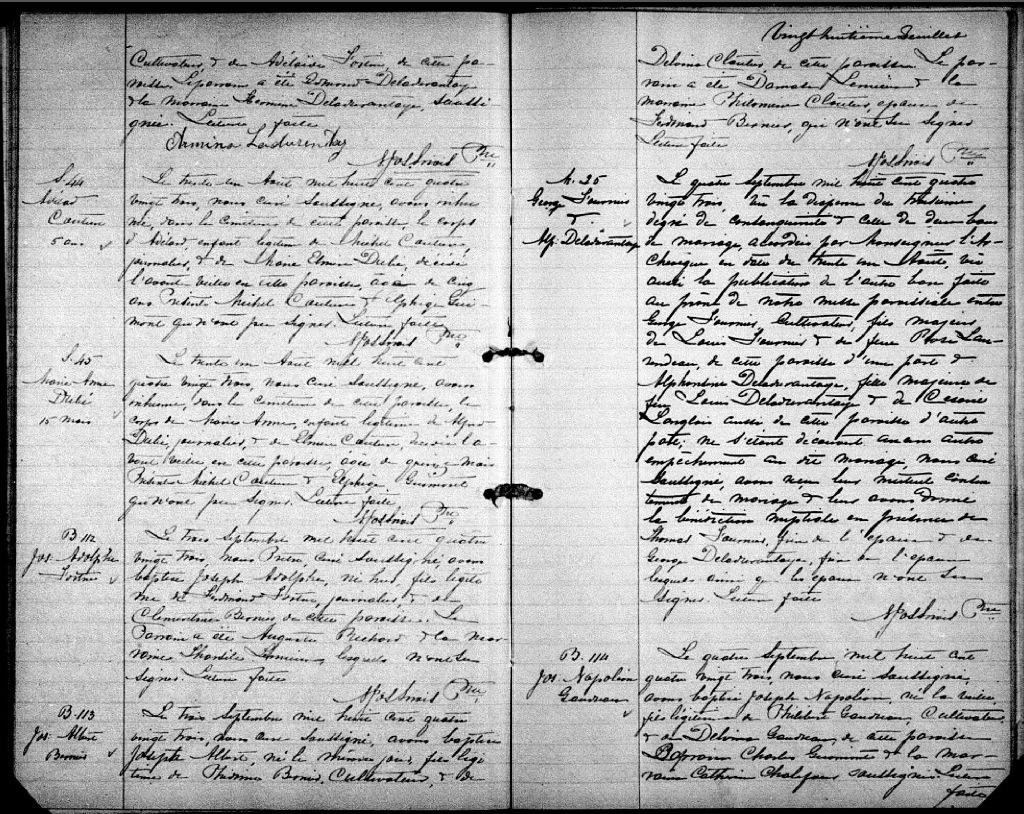 Cultivateur, & de Adélaïde Fortin, de cette pa-
roisse. Le parrain a été Edmond Deladurantaye
& la marraine Hermine Deladurantaye, soussi-
gnée. Lecture faite
Armina Ladurantay
Ptre
S. 44
Adélard
Couture
5 ans
Le trente un Aout mil huit cent quatre
vingt trois, nous curé soussigné, avons inhu-
mé, dans le cimetière de cette paroisse, le corps
d'Adélard, enfant légitime de Michel Couture,
journalier, & de Marie Elmire Dubé, décédé
l'avant veille en cette paroisse, agé de cinq
ans. Présents Michel Couture & Elphège Gui-
mont qui n'ont pu signer. Lecture faite
Ptre
S. 45
Marie Anne
Dubé
15 mois
Le trente un Aout mil huit cent
quatre vingt trois, nous curé soussigné, avons
inhumé, dans le cimetière de cette paroisse, le
corps de Marie Anne, enfant légitime de
Dubé, journalier, & de Elmire Couture, décédée l'a-
vant veille en cette paroisse, agée de quinze mois
Présents Michel Couture & Elphège Guimont
qui n'ont pu signer. Lecture faite
Ptre
B. 112
Jos. Adolphe
Fortin
Le trois Septembre mil huit cent quatre
vingt trois, nous Prêtre, curé soussigné, avons
baptisé Joseph Adolphe, né hier, fils légiti-
me de Ferdinand Fortin, journalier, & de
Clementine Bernier de cette paroisse. Le
Parrain a été Auguste Richard & la mar-
raine Lemieux, lesquels n'ont su
signer. Lecture faite
Ptre
B. 113
Jos. Albert
Bernier
Le trois Septembre mil huit cent quatre
vingt trois, nous curé soussigné, avons baptisé
Joseph Albert, né le même jour, fils légi-
time de Bernier, Cultivateur, & de
Vingt huitième feuillet
Delvina Cloutier, de cette paroisse. Le par-
rain a été Damase Lemieux & la
marraine Philomène Cloutier, épouse de
Ferdinand Bernier, qui n'ont su signer
Lecture faite
Ptre
M. 25
George Fournier
&
Alp. Deladurantaye
Le quatre Septembre mil huit cent quatre
vingt trois, Vu la dispense du troisième
degré de consanguinité & celle de deux bans
de mariage, accordées par Monseigneur l'Ar-
chevêque en date du trente un Aout, vu
aussi la publication de l'autre ban faite
au prone de notre messe paroissiale entre
George Fournier, Cultivateur, fils majeur
de Louis Fournier & de feue Rose
de cette paroisse d'une part &
Alphonsine Deladurantaye, fille majeure de
feu Louis Deladurantaye & de Césarie
Langlois aussi de cette paroisse d'autre
part; ne s'étant découvert aucun autre
empêchement au dit mariage, nous curé
soussigné, avons reçu leur mutuel consen-
tement de mariage & leur avons donné
la bénédiction nuptiale en présence de
Thomas Fournier, de l'époux & de
George Deladurantaye, de l'épouse
lesquels ainsi q les époux n'ont su
signer. Lecture faite
Ptre
B. 114
Jos Napoléon
Gaudreau
Le quatre Septembre mil huit cent
quatre vingt trois, nous curé soussigné,
avons baptisé Joseph Napoléon, né la veille
fils légitime de Philibert Gaudreau, Cultivateur
& de Delvina Gaudreau, de cette paroisse
Parrain Charles Guimont & la mar-
raine Catherine Chalifour soussignée. Lecture
faite